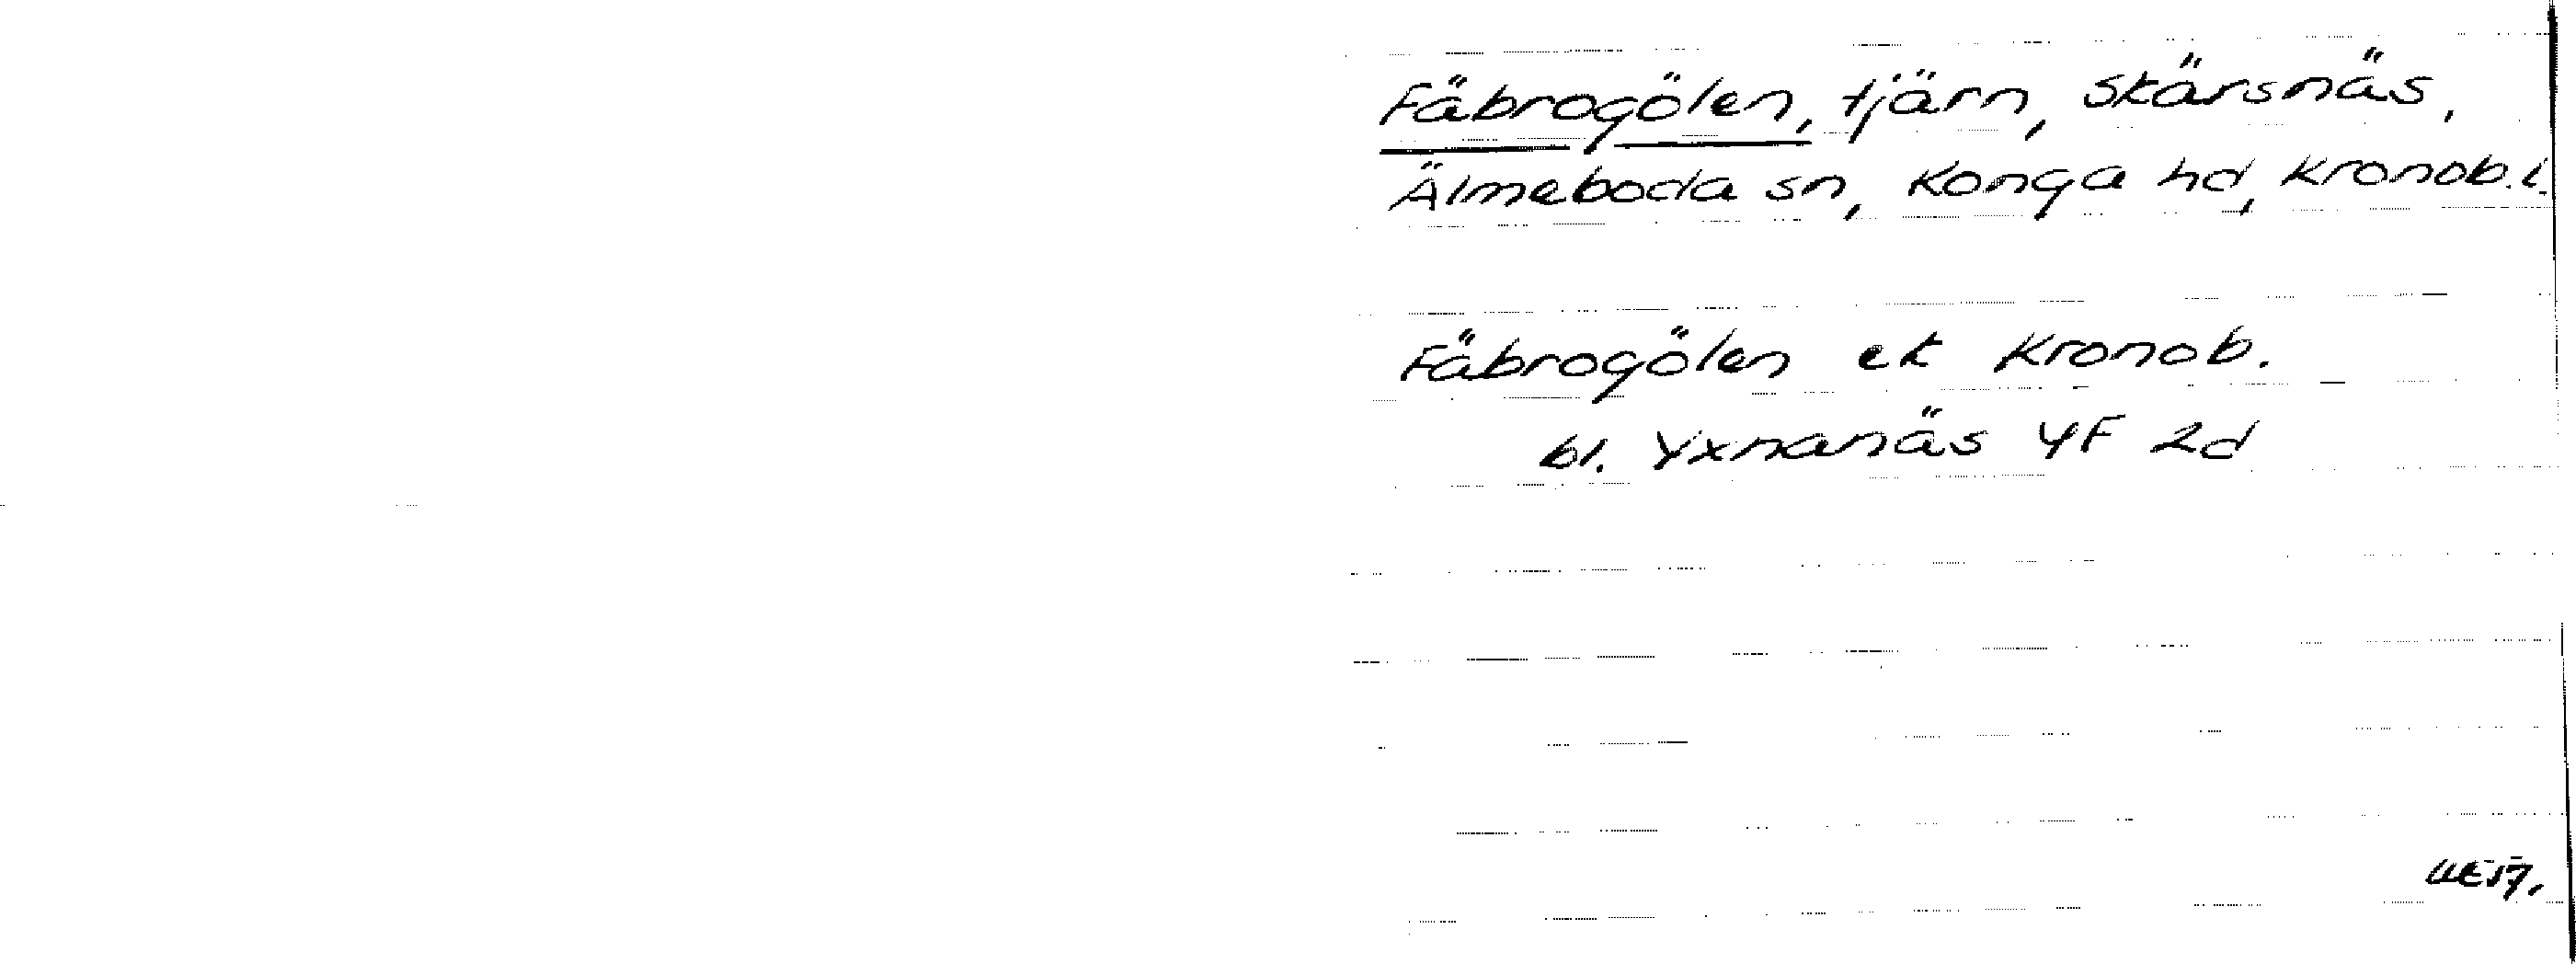 Fäbrogölen, tjärn, Skärsnäs,
Älmeboda sn, Konga hd, Kronob. l.
Fäbrogölen ek Kronob.
bl. Yxnanäs 4F 2d